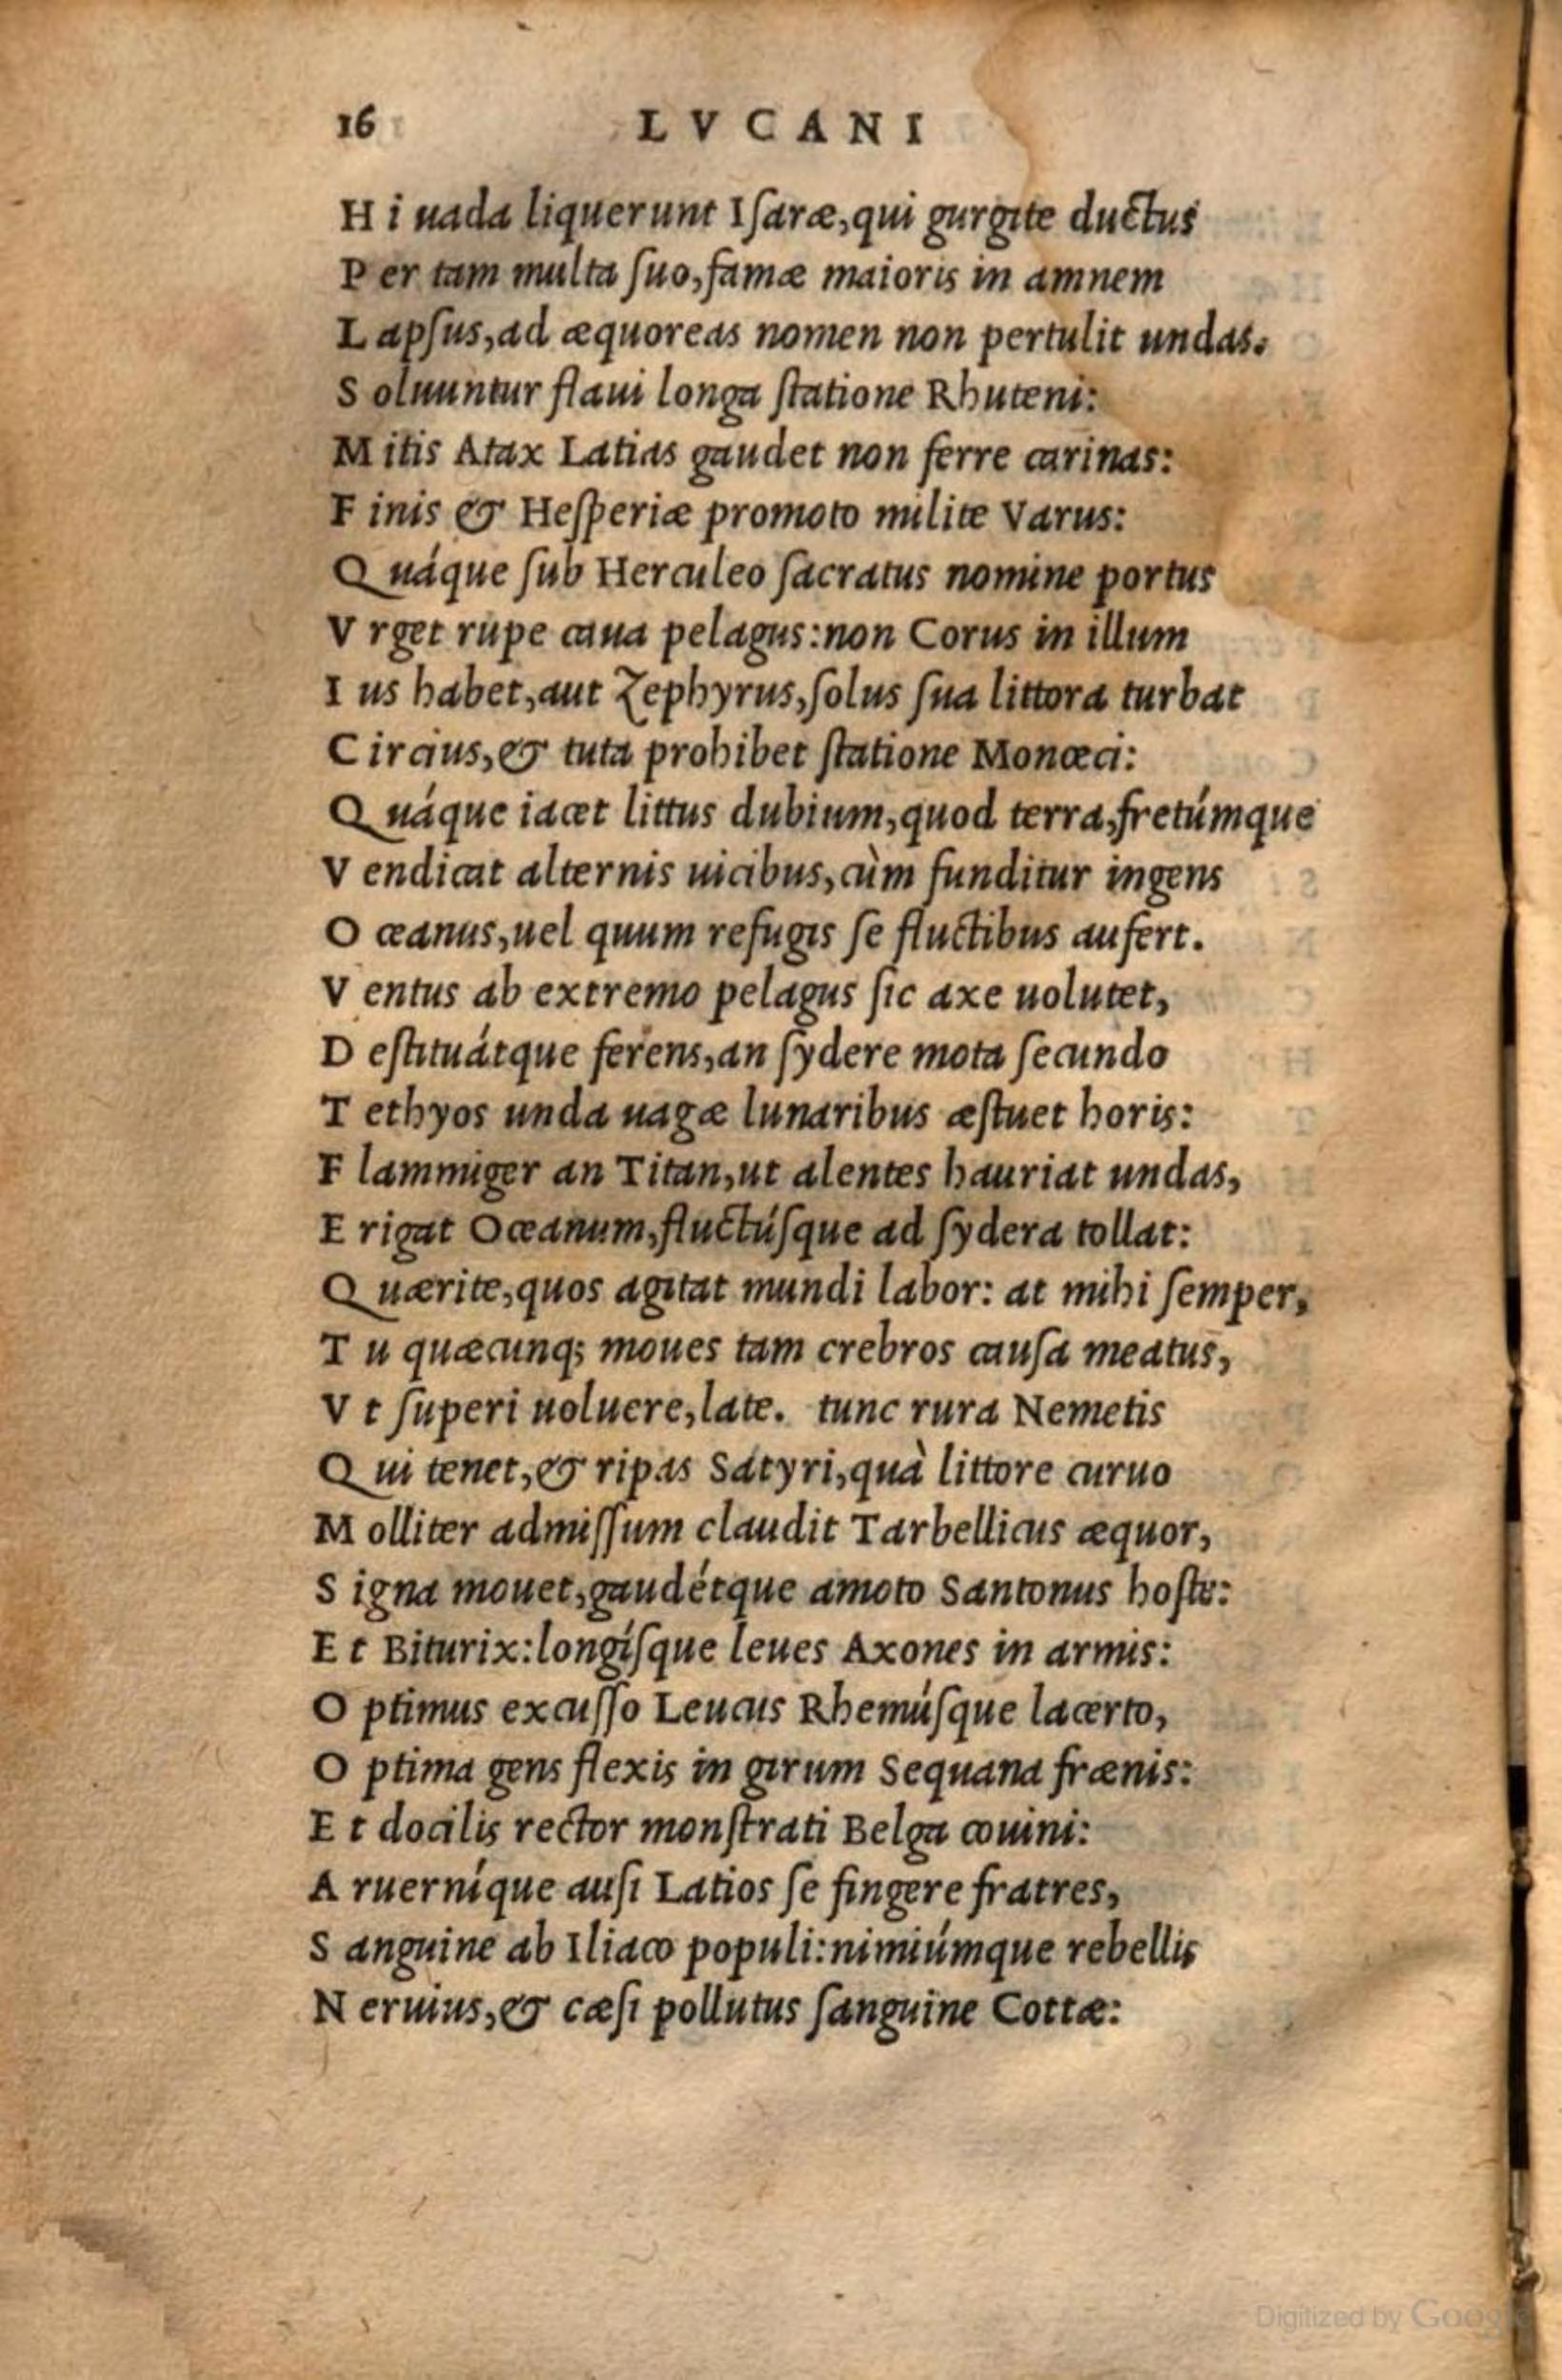 16 LVCANI
H i uada liquerunt Iſaræ,qui gurgite ductus
P er tam multa ſuo,famæ maioris in amnem
L apſus,ad æquoreas nomen non pertulit undas.
S oluuntur flaui longa ſtatione Rhuteni:
M itis Atax Latias gaudet non ferre carinas:
F inis & Heſperiæ promoto milite Varus:
Q uáque ſub Herculeo ſacratus nomine portus
V rget rupe caua pelagus:non Corus in illum
I us habet,aut Zephyrus,ſolus ſua littora turbat
C ircius,& tuta prohibet ſtatione Monœci:
Q uáque iacet littus dubium,quod terra,fretúmque
V endicat alternis uicibus,cùm funditur ingens
O ceanus,uel quum refugis ſe fluctibus aufert.
V entus ab extremo pelagus ſic axe uolutet,
D eſtituátque ferens,an ſydere mota ſecundo
T ethyos unda uagæ lunaribus æſtuet horis:
F lammiger an Titan,ut alentes hauriat undas,
E rigat Oceanum,fluctúſque ad ſydera tollat:
Q uærite,quos agitat mundi labor: at mihi ſemper,
T u quæcunq; moues tam crebros cauſa meatus,
V t ſuperi uoluere,late. tunc rura Nemetis
Q ui tenet,& ripas Satyri,quà littore curuo
M olliter admiſſum claudit Tarbellicus æquor,
S igna mouet,gaudétque amoto Santonus hoſte:
E t Biturix:longíſque leues Axones in armis:
O ptimus excuſſo Leucus Rhemúſque lacerto,
O ptima gens flexis in girum Sequana frænis:
E t docilis rector monſtrati Belga couini:
A rueruíque auſi Latios ſe fingere fratres,
S anguine ab Iliaco populi:nimiúmque rebellis
N eruius,& cæſi pollutus ſanguine Cottæ:
Digitized by Google